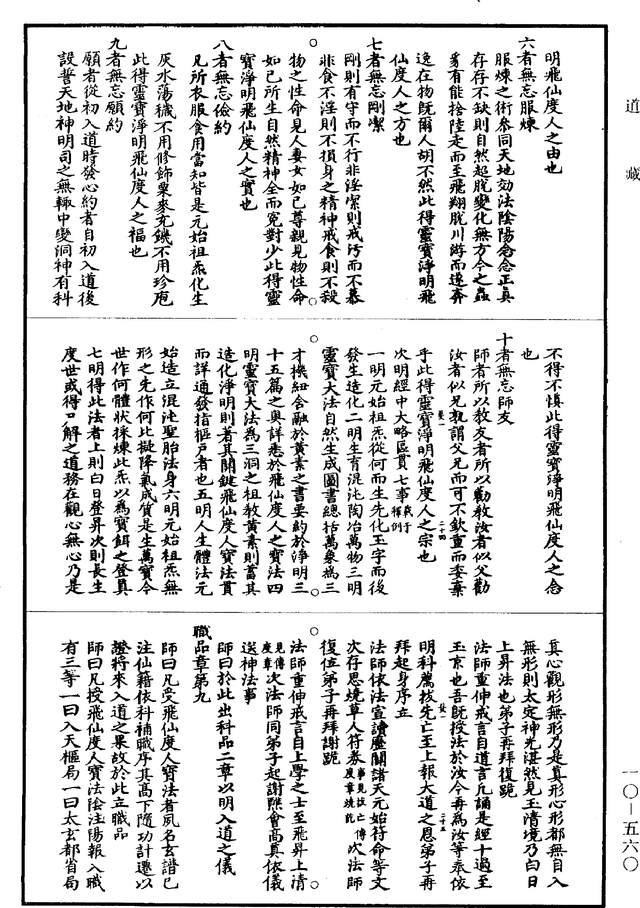 道藏
明飛仙度人之由也
六者無忘服煉
服煉之術參同天地効法陰陽念念正真
存存不缺則自然超脫變化無方今之蟲
豸有能捨陸走而至飛翔脫川游而遂奔
逸在物既爾人胡不然此得靈寶淨明飛
仙度人之方也
七者無忘剛潔
剛則有守而不行非淫潔則戒汚而不慕
非食不淫則不損身之精神戒食則不殺
物之性命見人妻女如己尊親見物性命
如己所生自然精神全而寃對少此得靈
寶淨明飛仙度人之寶也
八者無忘儉約
凡所衣服食用當知皆是元始祖炁化生
灰水蕩穢不用修飾粟麥充饑不用珍庖
此得靈寶淨明飛仙度人之福也
九者無忘願約
願者從初入道時發心約者自初入道後
設誓天地神明司之無輙中變洞神有科
不得不慎此得靈寶淨明飛仙度人之念
也
十者無忘師友
師者所以教友者所以勸教汝者似父勸
汝者似兄孰謂父兄而可不欽重而委棄
乎此得靈寶淨明飛仙度人之宗也
次明經中大略區貫七事
一明元始祖炁從何而生先化玉字而後
發生造化二明生育混沌陶冶萬物三明
靈寶大法自然生成圖書總括萬象為三
才樞紐含融於黃素之書要約於淨明三
十五篇之奧詳悉於飛仙度人之寶法四
明靈寶大法為三洞之祖教黃素則蓄其
造化淨明則著其關鍵飛仙度人寶法貫
而詳通發指樞戸者也五明人生體法元
始造立混沌聖胎法身六明元始祖炁無
形之先作何比擬降氣成質是生萬寶今
世作何體狀採煉此炁以為寶餌之登真
七明得此法者上則白日登昇次則長生
度世或得尸解之道務在觀心無心乃是
真心觀形無形乃是真形心形都無自入
無形則太定神光湛然見玉清境乃白日
上昇法也弟子再拜復跪
法師重伸戒言自道言凡誦是經十過至
玉京也吾既授法於汝今再為汝等奉依
明科薦拔先亡至上報大道之恩弟子再
拜起身序立
法師依法宣讀靈關諸天元始符命等文
次存思燒草人符券
次法師
復位弟子再拜謝跪
法師重伸戒言自上學之士至飛昇上清
次法師同弟子起謝熙會高真依儀
送神法事
師曰於此出科品二章以明入道之儀
職品章第九
師曰凡受飛仙度人寶法者夙名玄譜已
注仙籍依科補職序其高下隨功計遷以
證將來入道之果故於此立職品
師曰凡授飛仙度人寶法陰注陽報入職
有三等一曰入天樞局一曰太玄都省局
一〇—五六〇